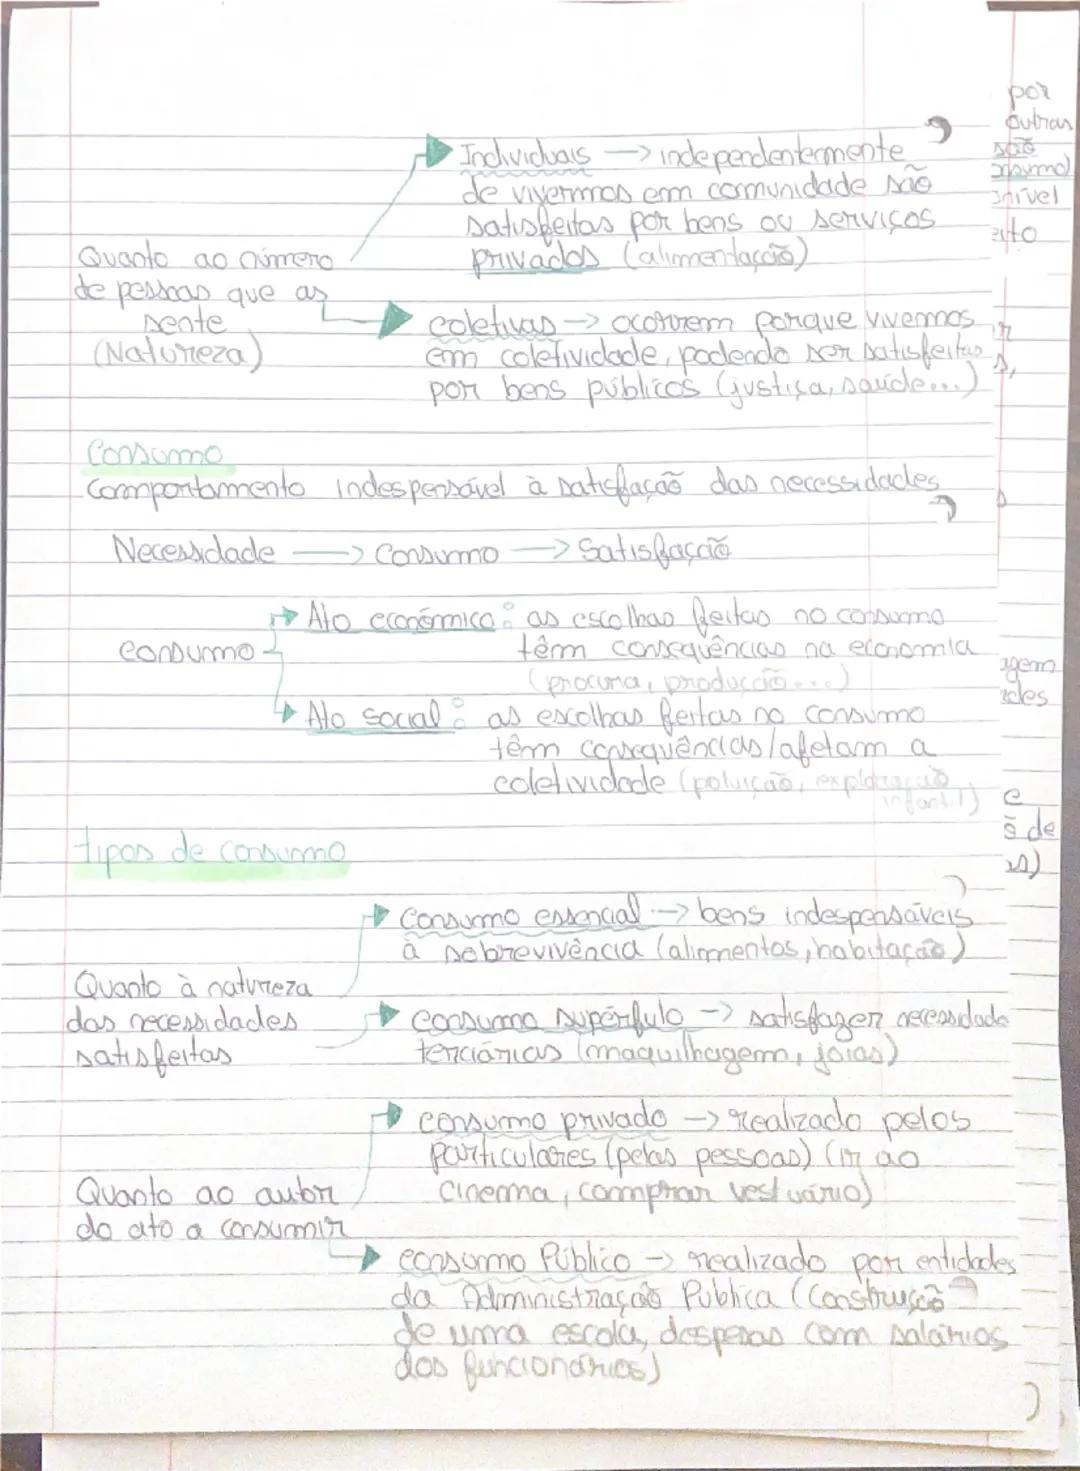 Individuais → independentemente
de vivermos em comunidade são
satisfeitas por bens ou serviços
privados (alimentação)
Quanto ao número
de pessoas que as
sente
(Natureza)
coletivas → ocorrem porque vivemos
em coletividade, podendo ser satisfeitas
por bens públicos (justiça, saúde...)
Consumo
Comportamento indespensável à satisfação das necessidades
Necessidade → Consumo → Satisfação
consumo
Ato económico: as escolhas feitas no consumo
têm consequências na economia
(procura, produção...)
Ato social: as escolhas feitas no consumo
têm consequências/afetam a
coletividade (poluição, exploração
infantil)
tipos de consumo
Consumo essencial → bens indespensáveis
à sobrevivência (alimentos, habitação)
Quanto à natureza
das necessidades
satisfeitas
consumo supérfulo → satisfazer necessidade
terciárias (maquilhagem, joias)
consumo privado → realizado pelos
particulares (pelas pessoas) (ir ao
cinema, comprar vestuário)
Quanto ao autor
do ato a consumir
consumo Público → realizado por entidades
da Administração Pública (Construção
de uma escola, despesas com salários
dos funcionários)
por
outras
são
nível
s,
agem
e
s de
s)